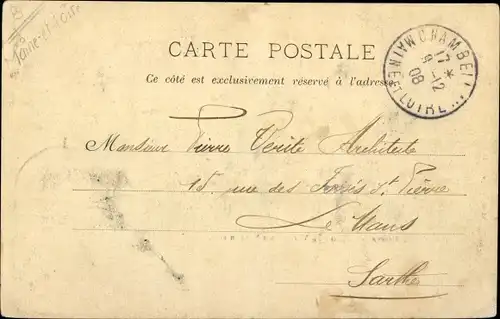 Maine-et-Loire
CARTE POSTALE
Ce côté est exclusivement réservé à l'adresse.
CHAMBE
17 -12
08
MAINE ET LOIRE
Monsieur Pierre Verité Architecte
15 rue des Fossés St Pierre
Le Mans
Sarthe